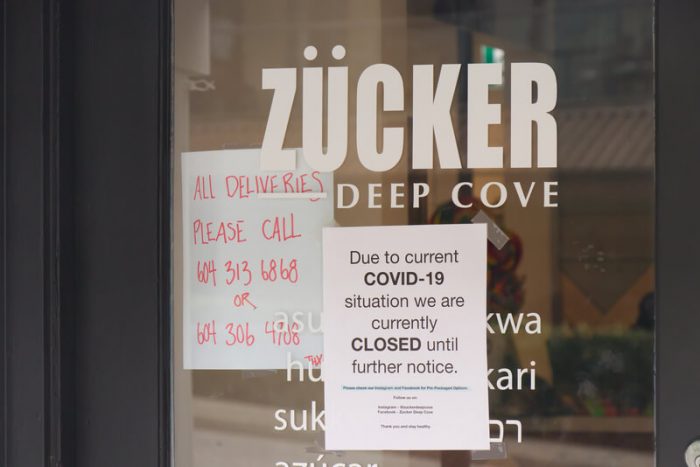 ZÜCKER
DEEP COVE
ALL DELIVERIES
PLEASE CALL
604 313 6868
OR
604 306 4788
THX
Due to current
COVID-19
situation we are
currently
CLOSED until
further notice.
Please check our Instagram and Facebook for Pre-Packaged Options.
Follow us on:
Instagram - @zuckerdeepcove
Facebook - Zucker Deep Cove
Thank you and stay healthy.
asu
kwa
hu
kari
suk
סו
azúcar